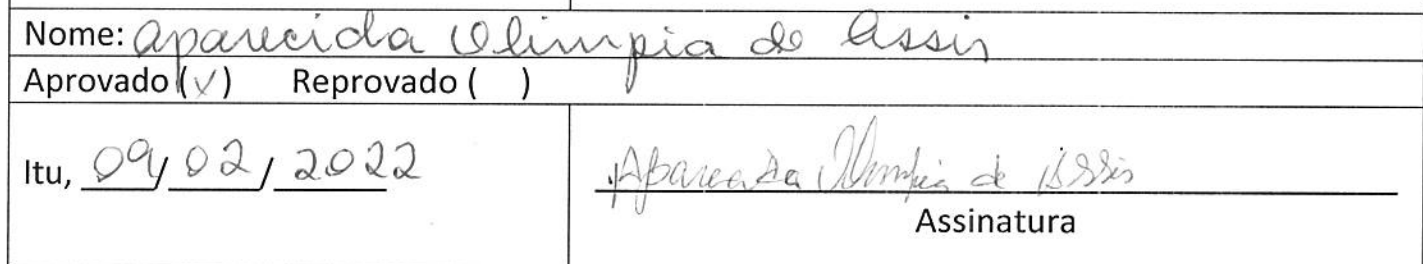 Nome: Aparecida Olimpia de Assis
Aprovado (✓) Reprovado ( )
Itu, 09/02/2022
Aparecida Olimpia de Assis
Assinatura